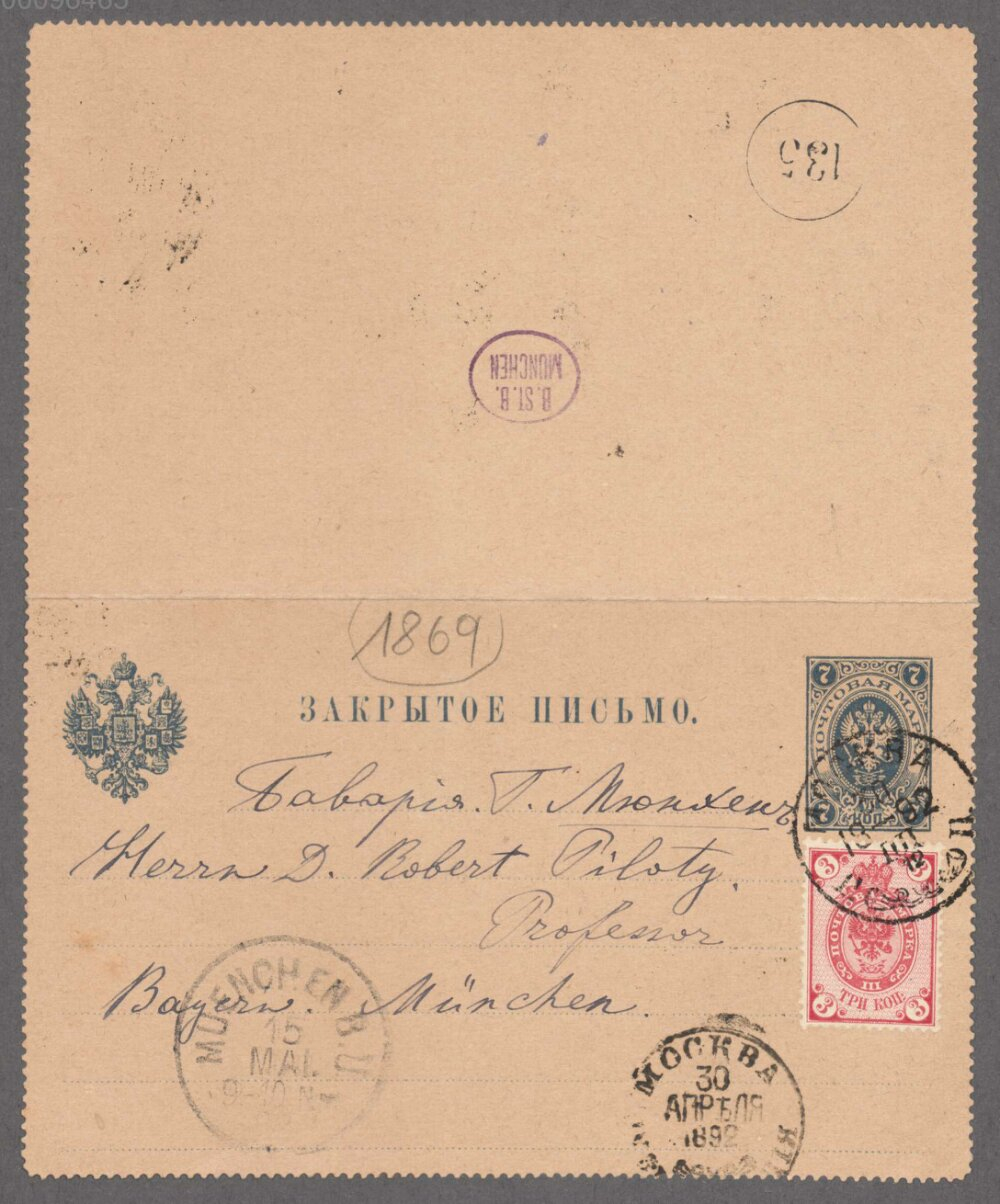 00096485
135
B. St. B.
MÜNCHEN
1869
ЗАКРЫТОЕ ПИСЬМО.
7 7
ПОЧТОВАЯ МАРКА
7 КОП. 7
Баварія. Г. Мюнхенъ
Herrn D. Robert Piloty.
Professor
Bayern. München.
3 3
ПОЧТОВАЯ МАРКА
III
3 ТРИ КОП. 3
MUENCHEN B.U
15
MAI.
9-10 N
МОСКВА
30
АПРѢЛЯ
1892